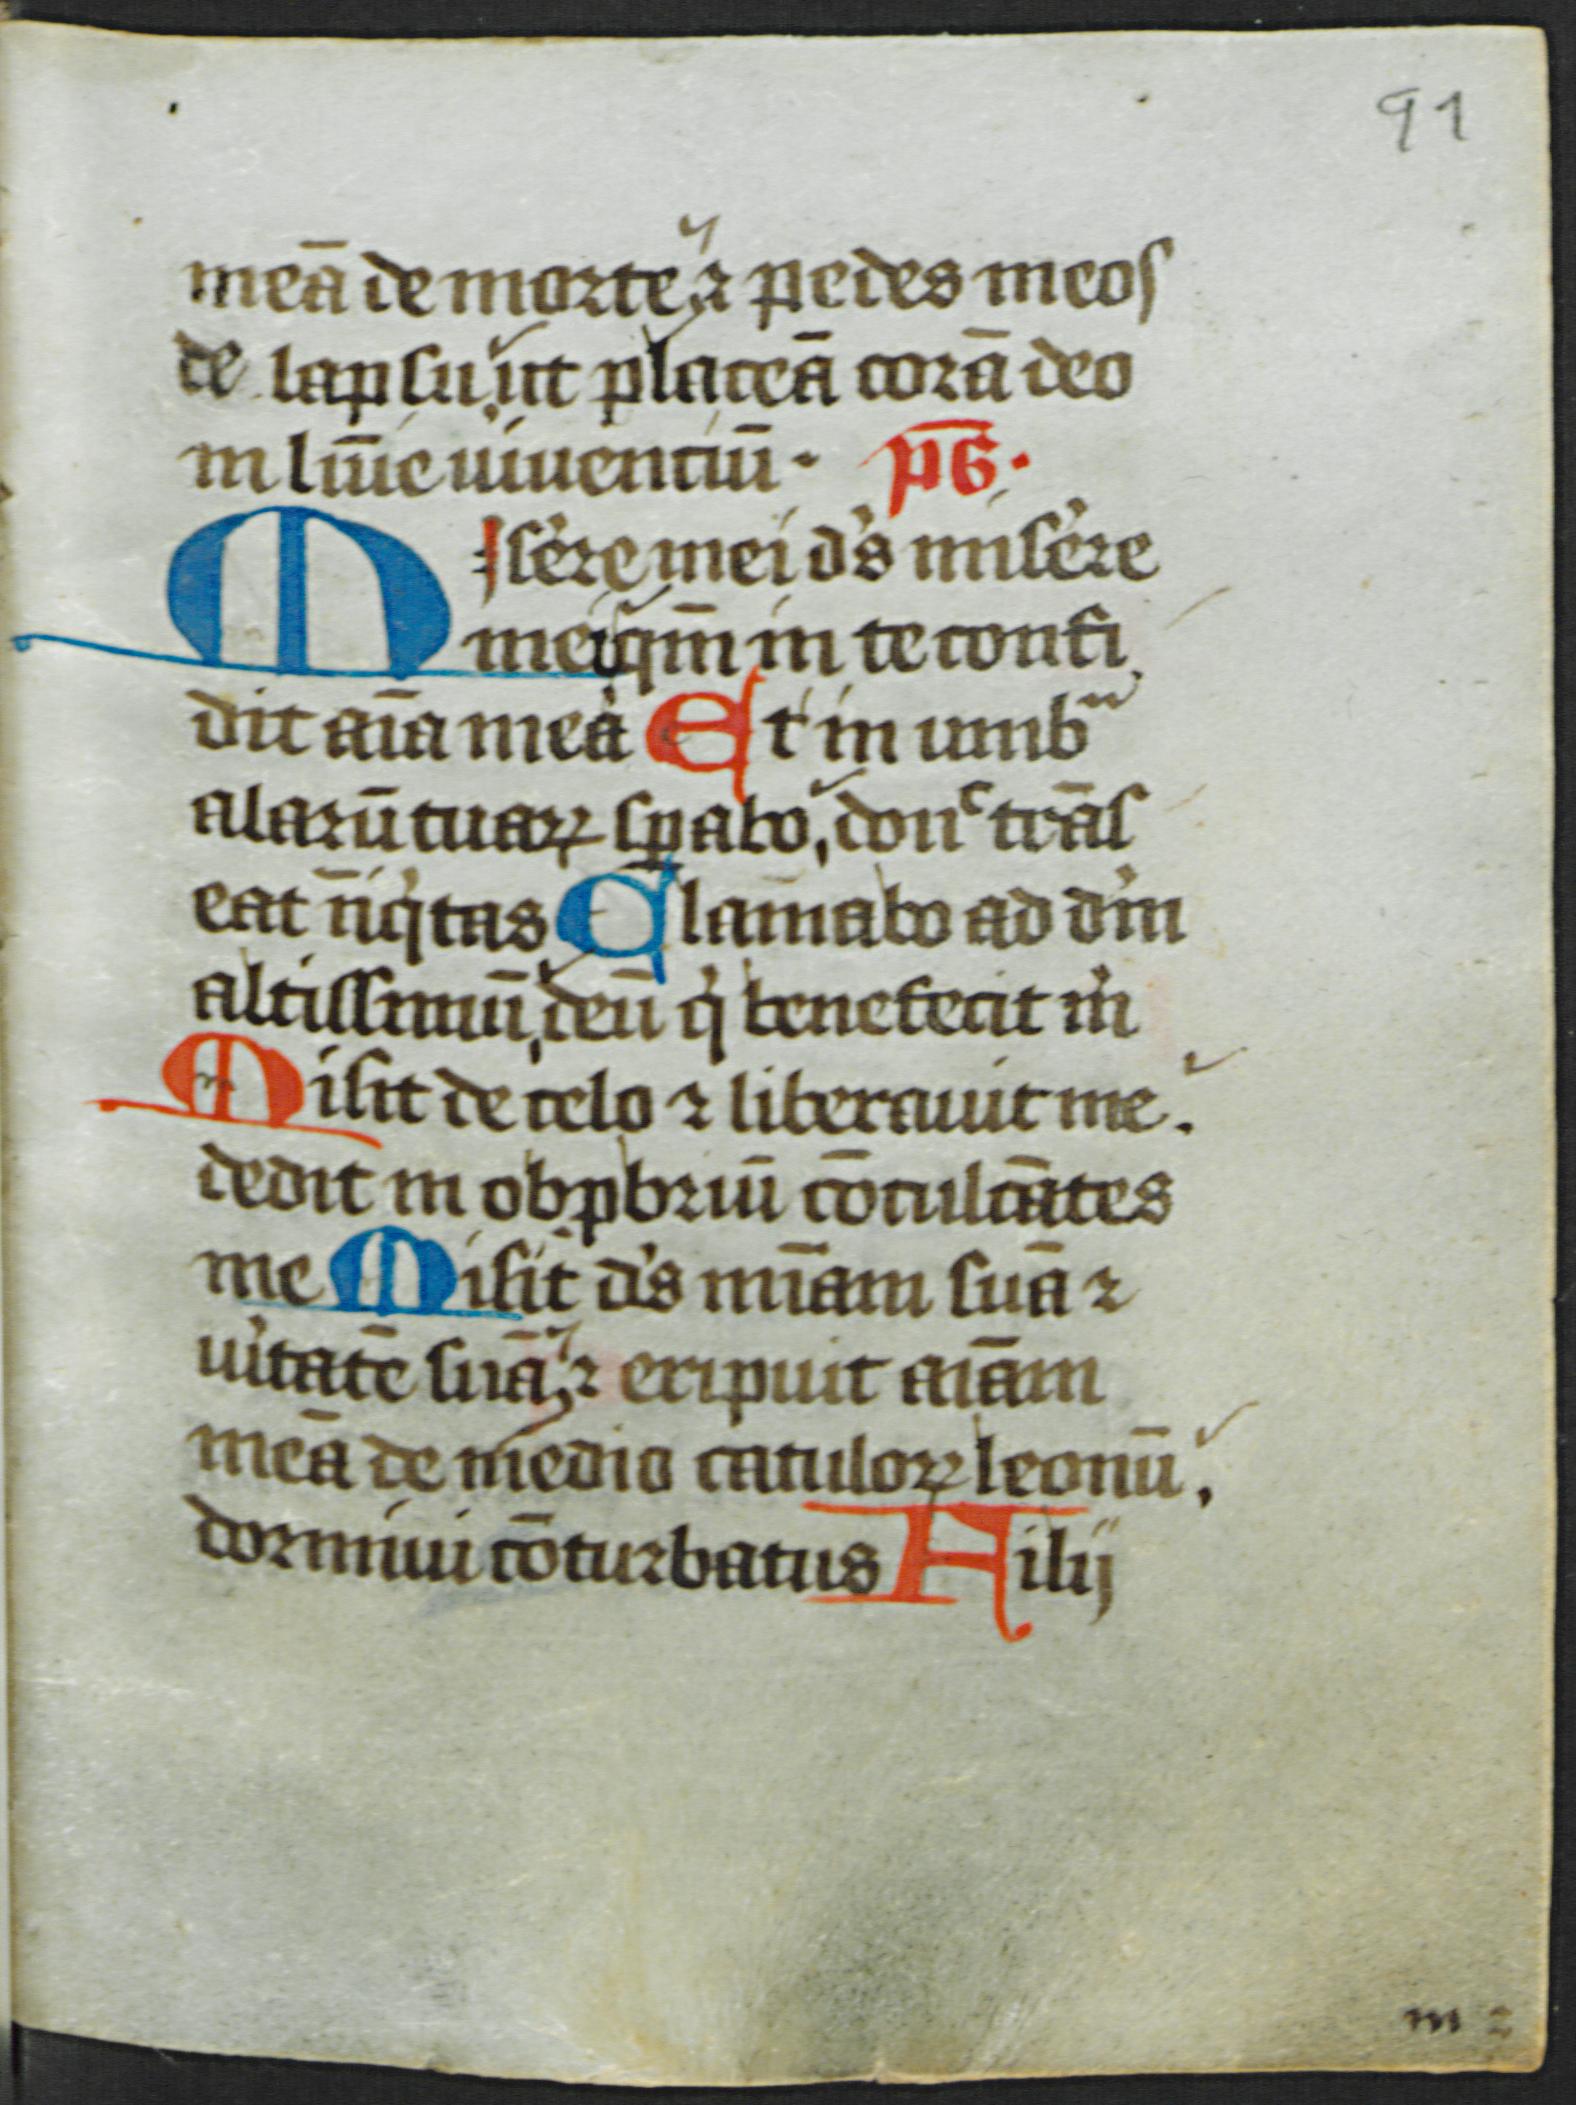 91
meā de morte ⁊ pedes meos
de lapsu ut placeā corā deo
in lūīe uiuentiū. pͫs.
Miserere mei d's misere
mei qm̄ in te confi
dit aīa mea Et in umbᵃ
alarū tuaꝝ sꝑabo, donᶜ trās
eat īiqͥtas Clamabo ad d'm
altissimū, deū qͥ benefecit m̍
Misit de celo ⁊ liberauit me.
dedit in obꝓbriū cōculcātes
me Misit d's mīam suā ⁊
u'itatē suā, ⁊ eripuit aīam
meā de medio catuloꝝ leonū,
dormiui cōturbatus Filij
m 2